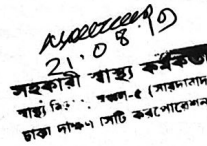 21.08.19
সহকারী স্বাস্থ্য কর্মকর্তা
স্বাস্থ্য অঞ্চল-৫ (সায়দাবাদ
ঢাকা দক্ষিণ সিটি কর্পোরেশন